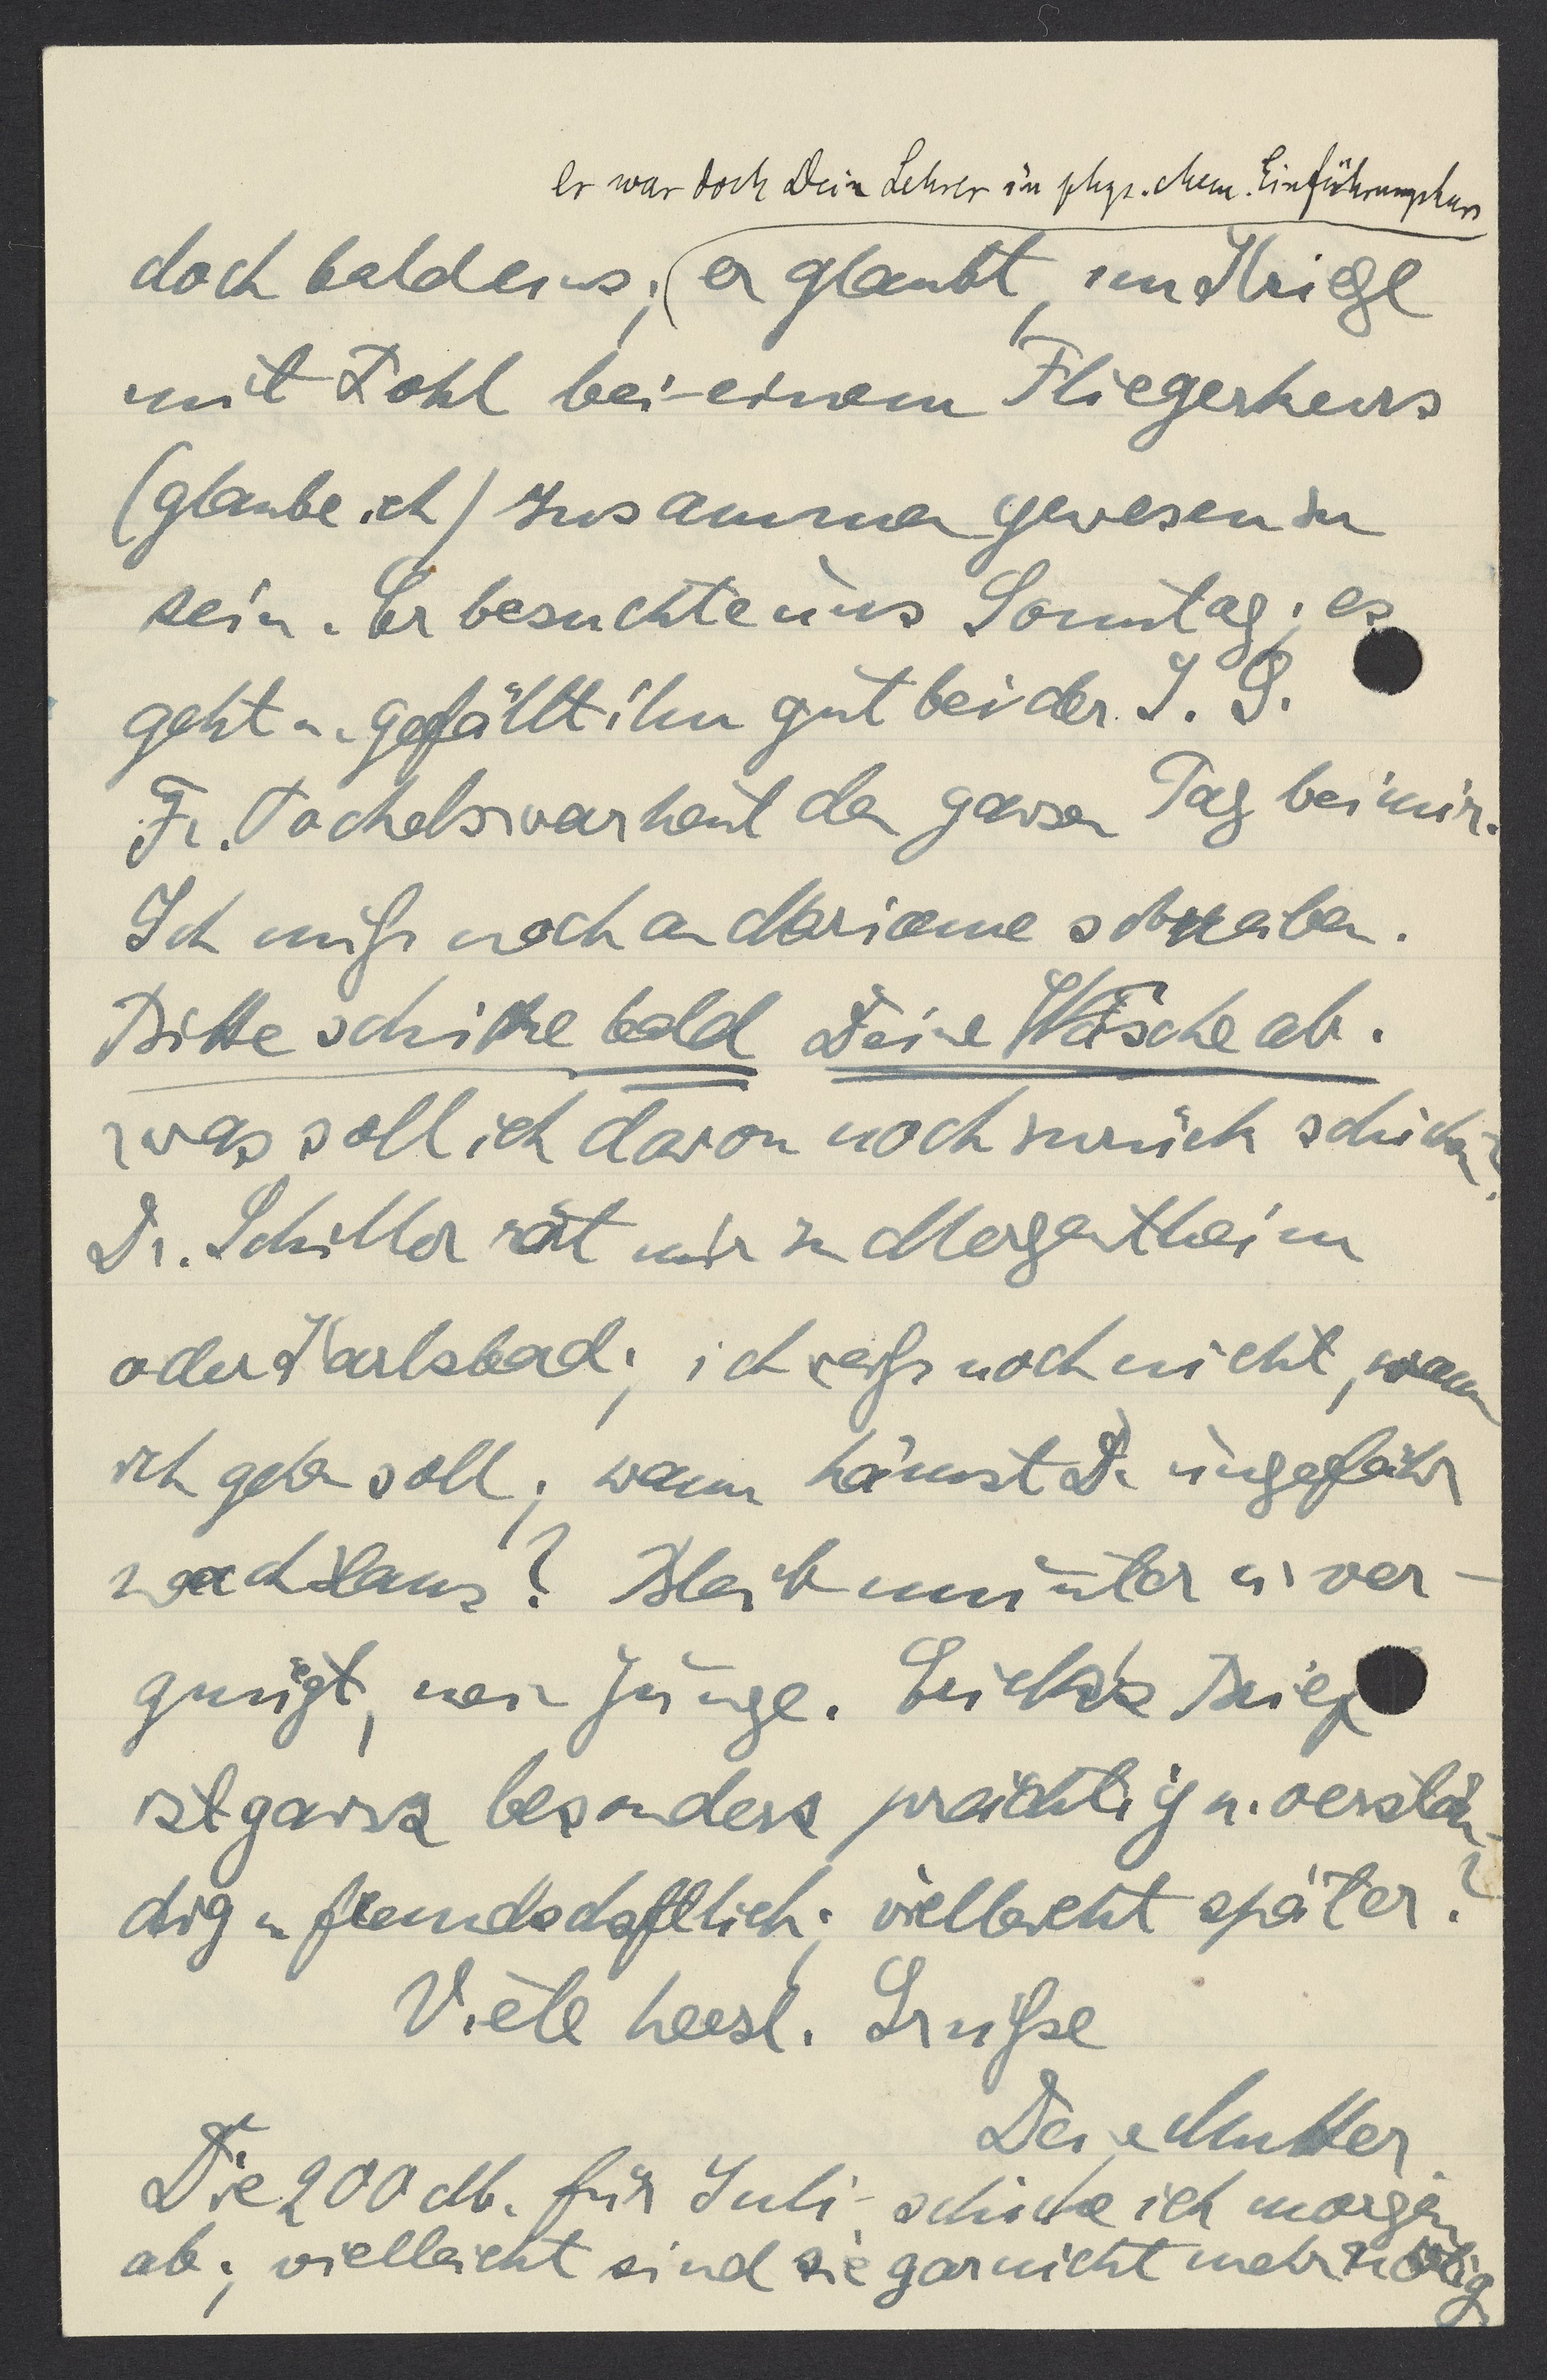 er war doch Dein Lehrer im phys. chem. Einführungskurs
doch bald eins; (er glaubt, im Kriege
mit Pohl bei einem Fliegerkurs
(glaube ich) zusammen gewesen zu
sein. Er besuchte uns Sonntag; es
geht u. gefällt ihm gut bei der I. G.
Fr. war heut den ganzen Tag bei mir.
Ich muß noch an Marianne schreiben.
Bitte schicke bald Deine Wäsche ab.
was soll ich davon noch zurück schicken?
Dr. Schiller rät mir zu Mergentheim
oder Karlsbad; ich weiß noch nicht, wann
ich gehen soll; wann kämst Du ungefähr
nach Haus? Bleib munter u. ver-
gnügt, mein Junge. Brief
ist ganz besonders prächtig u. verstän-
dig u freundschaftlich; vielleicht später?
Viele herzl. Grüße
Deine Mutter.
Die 200 M. für Juli schicke ich morgen
ab; vielleicht sind sie gar nicht mehr nötig